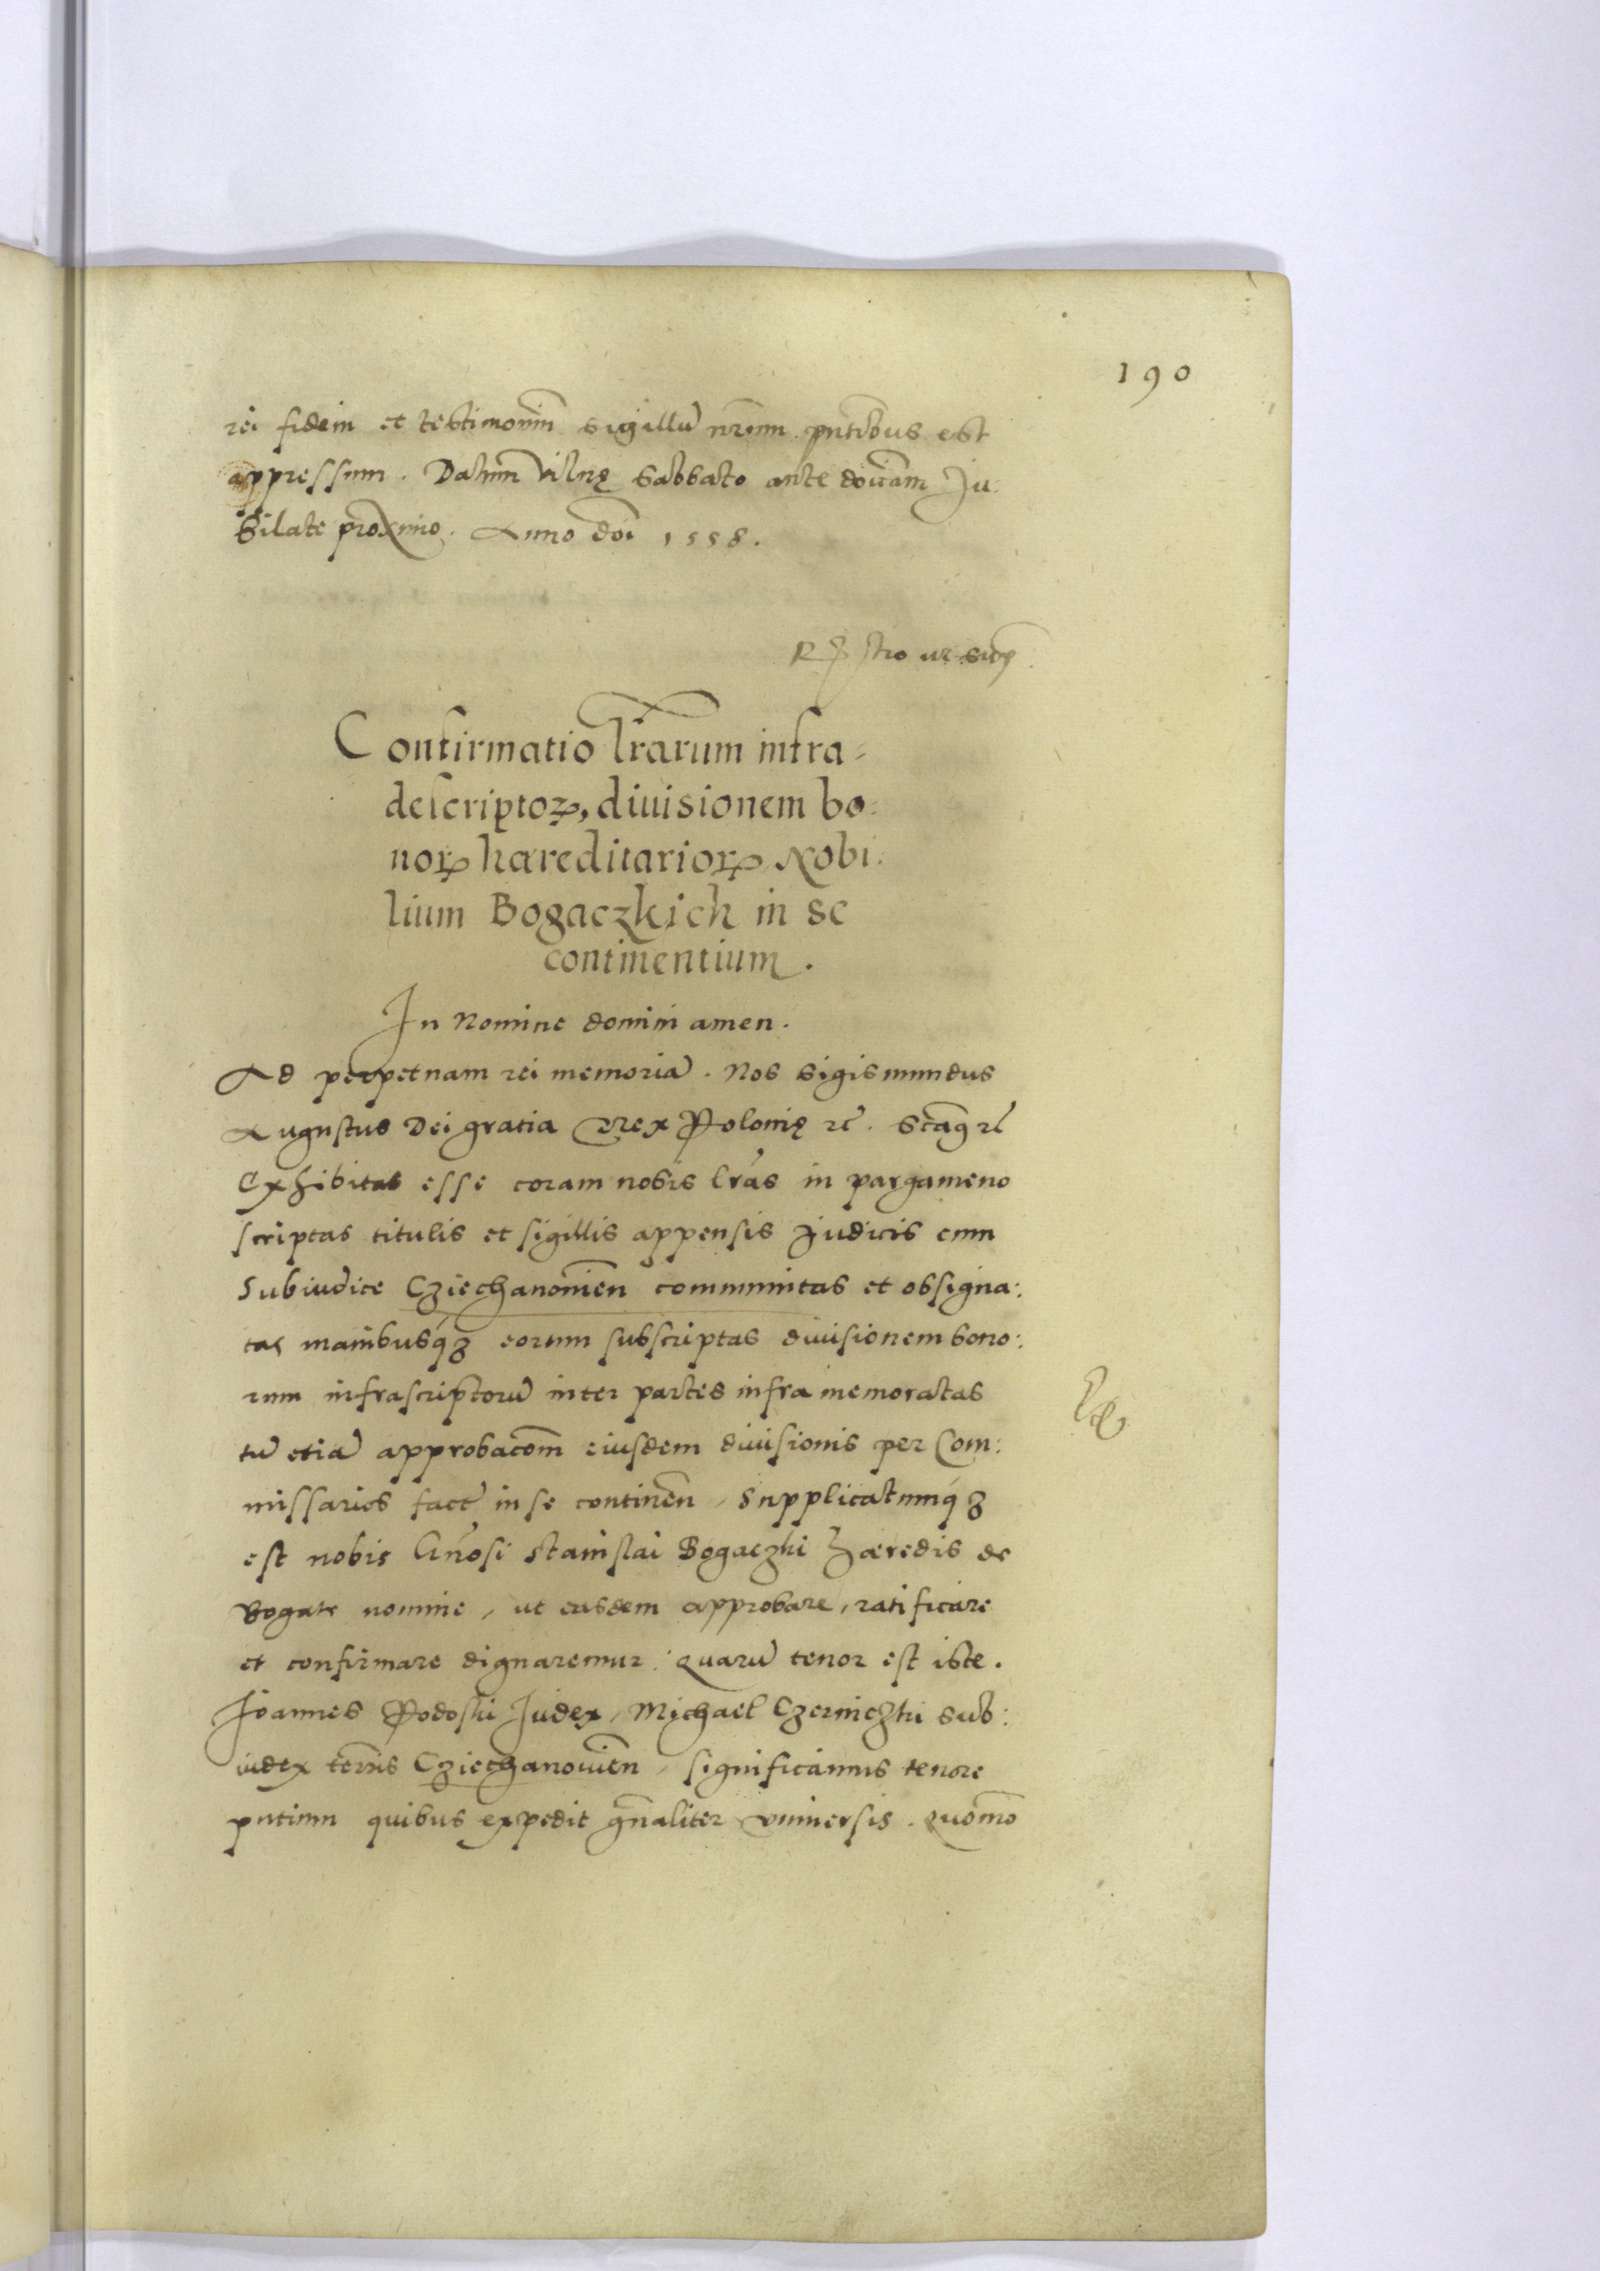 190
rei fidem et testimoniũ sigillũ nrum pntibus est
appressum. Datum Vilnę Sabbato ante dõicam Ju:
bilate proximo. Anno doi 1558.
ut supra
Confirmatio lrarum infra-
descriptoꝝ, diuisionem bo:
noꝝ hæreditarioꝝ Nobi:
lium Bogaczkich in se
continentium.
In Nomine domini amen.
Ad perpetuam rei memoriã. Nos Sigismundus
Augustus Dei gratia Rex Polonię ꝛc̃. Scaq̃ ꝛc̃
Exhibitas esse coram nobis lras in pargameno
scriptas titulis et sigillis appensis Judicis cum
Subiudice Cziechanouien̄ communitas et obsigna:
tas manibusq́ꝫ eorum subscriptas diuisionem bono:
rum infrascriptorũ inter partes infra memoratas
tũ etiã approbacõm eiusdem diuisionis per Com:
missarios factã in se continen̄, Supplicatumq́ꝫ
est nobis Gñosi Stanislai Bogaczki hæredis de
Bogate nomine, ut easdem approbare, ratificare
et confirmare dignaremur: Quarũ tenor est iste.
Joannes Podoski Judex, Michael Czerniczki Sub:
iudex terris Cziechanouien̄, significamus tenore
pntium quibus expedit gñaliter vniuersis. Quomõ